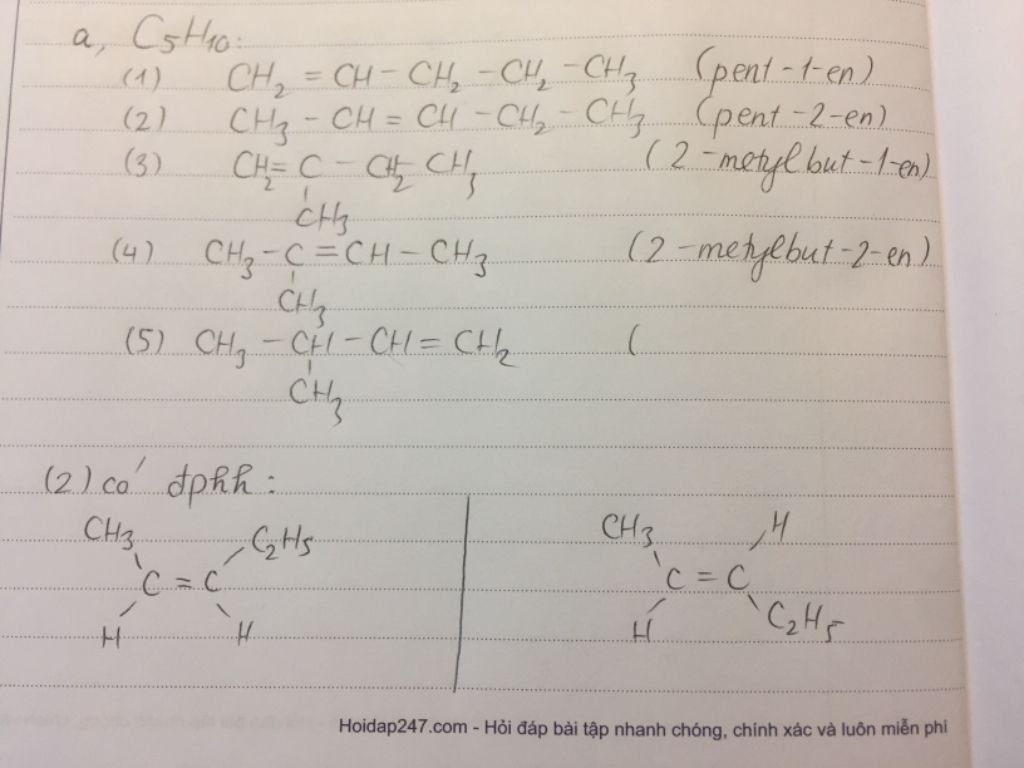 a, C₅H₁₀:
(1) CH₂ = CH - CH₂ - CH₂ - CH₃ (pent-1-en)
(2) CH₃ - CH = CH - CH₂ - CH₃ (pent-2-en)
(3) CH₂ = C - CH₂ CH₃ (2-metylbut-1-en)
CH₃
(4) CH₃ - C = CH - CH₃ (2-metylbut-2-en)
CH₃
(5) CH₃ - CH - CH = CH₂ (
CH₃
(2) có đphh :
CH₃ C₂H₅ CH₃ H
C = C C = C
H H H C₂H₅
Hoidap247.com - Hỏi đáp bài tập nhanh chóng, chính xác và luôn miễn phí